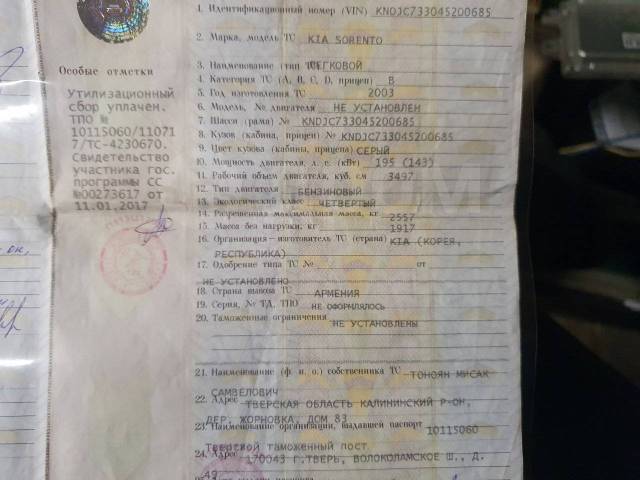 1. Идентификационный номер (VIN) KNDJC733045200685
2. Марка, модель ТС KIA SORENTO
3. Наименование (тип ТС) ЛЕГКОВОЙ
4. Категория ТС (A, B, C, D, прицеп) B
5. Год изготовления ТС 2003
6. Модель, № двигателя НЕ УСТАНОВЛЕН
7. Шасси (рама) № KNDJC733045200685
8. Кузов (кабина, прицеп) № KNDJC733045200685
9. Цвет кузова (кабины, прицепа) СЕРЫЙ
10. Мощность двигателя, л. с. (кВт) 195 (143)
11. Рабочий объем двигателя, куб. см 3497
12. Тип двигателя БЕНЗИНОВЫЙ
13. Экологический класс ЧЕТВЕРТЫЙ
14. Разрешенная максимальная масса, кг 2557
15. Масса без нагрузки, кг 1917
16. Организация-изготовитель ТС (страна) KIA (КОРЕЯ,
РЕСПУБЛИКА)
17. Одобрение типа ТС № от
НЕ УСТАНОВЛЕНО
18. Страна вывоза ТС АРМЕНИЯ
19. Серия, № ТД, ТПО НЕ ОФОРМЛЯЛОСЬ
20. Таможенные ограничения НЕ УСТАНОВЛЕНЫ
21. Наименование (ф. и. о.) собственника ТС ТОНОЯН МИСАК
САМВЕЛОВИЧ
22. Адрес ТВЕРСКАЯ ОБЛАСТЬ КАЛИНИНСКИЙ Р-ОН,
ДЕР. ЖОРНОВКА, ДОМ 83
23. Наименование организации, выдавшей паспорт 10115060
Тверской таможенный пост
24. Адрес 170043 Г.ТВЕРЬ, ВОЛОКОЛАМСКОЕ Ш., Д.
49
Особые отметки
Утилизационный
сбор уплачен.
ТПО №
10115060/11071
7/ТС-4230670.
Свидетельство
участника гос.
программы СС
№00273617 от
11.01.2017